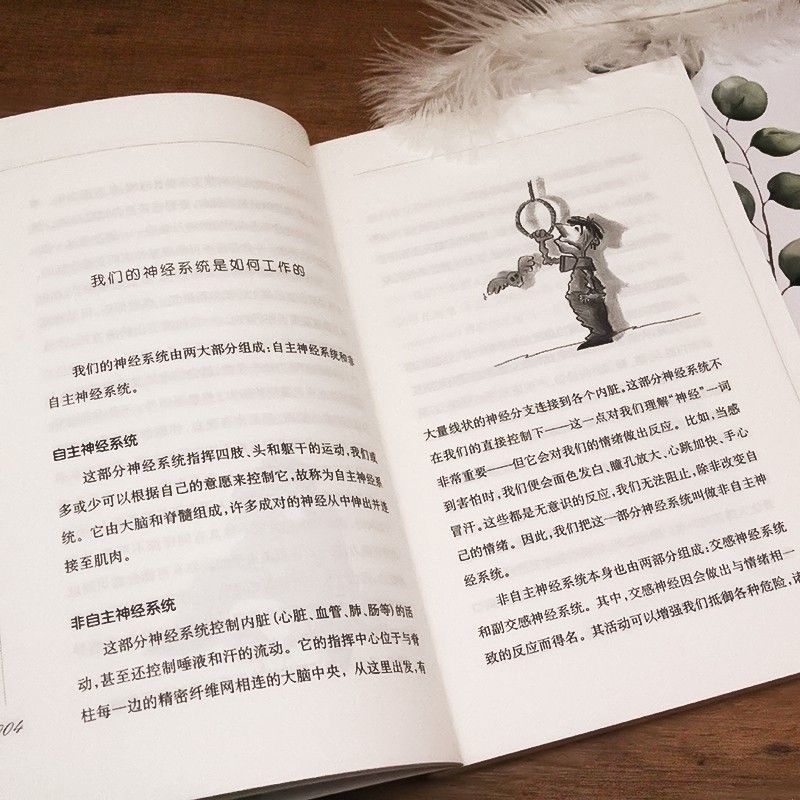 我们的神经系统是如何工作的
我们的神经系统由两大部分组成：自主神经系统和非
自主神经系统。
自主神经系统
这部分神经系统指挥四肢、头和躯干的运动，我们或
多或少可以根据自己的意愿来控制它，故称为自主神经系
统。它由大脑和脊髓组成，许多成对的神经从中伸出并连
接至肌肉。
非自主神经系统
这部分神经系统控制内脏（心脏、血管、肺、肠等）的活
动，甚至还控制唾液和汗的流动。它的指挥中心位于与脊
柱每一边的精密纤维网相连的大脑中央，从这里出发，有
004
大量线状的神经分支连接到各个内脏。这部分神经系统不
在我们的直接控制下——这一点对我们理解“神经”一词
非常重要——但它会对我们的情绪做出反应。比如，当感
到害怕时，我们便会面色发白、瞳孔放大、心跳加快、手心
冒汗。这些都是无意识的反应，我们无法阻止，除非改变自
己的情绪。因此，我们把这一部分神经系统叫做非自主神
经系统。
非自主神经系统本身也由两部分组成：交感神经系统
和副交感神经系统。其中，交感神经因会做出与情绪相一
致的反应而得名。其活动可以增强我们抵御各种危险，诸